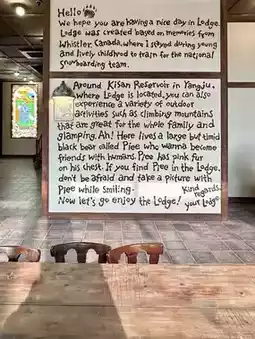 Hello
We hope you are having a nice day in Lodge.
Lodge was created based on memories from
Whistler, Canada, where I stayed during young
and lively childhood to train for the national
snowboarding team.
Around Kisan Reservoir in Yangju,
where Lodge is located, you can also
experience a variety of outdoor
activities such as climbing mountains
that are great for the whole family and
glamping. Ah! Here lives a large but timid
black bear called Plee who wanna become
friends with humans. Plee has pink fur
on his chest. If you find Plee in the Lodge,
don't be afraid and take a picture with
Plee while smiling~
Kind
regards,
Now let's go enjoy the Lodge!
your Lodge